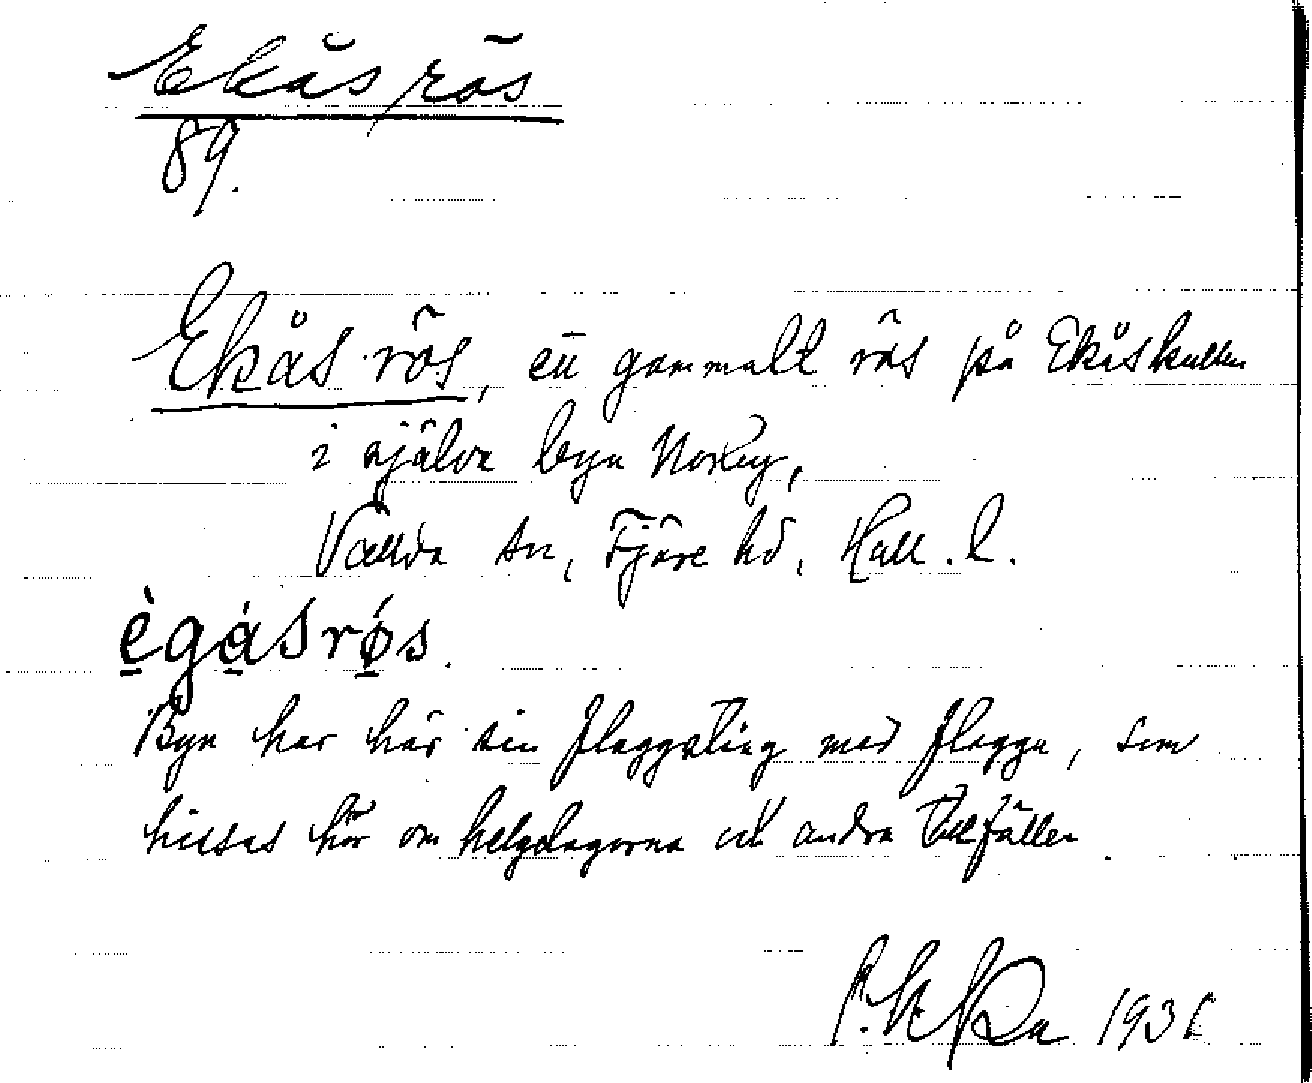 Ekås rös
89.
Ekås rös, ett gammalt rös på Ekåskullen
i själva byn
Vallda sn, Fjäre hd, Hall. l.
ègåsrǿs.
Byn har här sin flaggstång med flagga, som
hissas här om helgdagarna och andra tillfällen
193